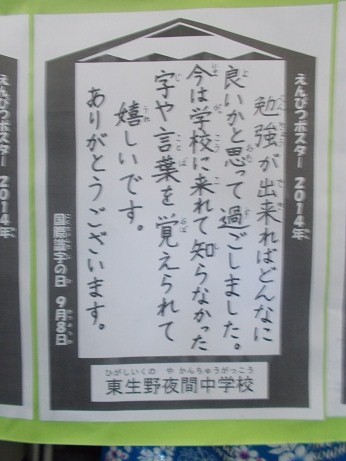 えんぴつポスター 2014年
勉強が出来ればどんなに
良いかと思って過ごしました。
今は学校に来れて知らなかった
字や言葉を覚えられて
嬉しいです。
ありがとうございます。
国際識字の日 9月8日
ひがしいくの や かんちゅうがっこう
東生野夜間中学校
えんぴつポスター 2014年